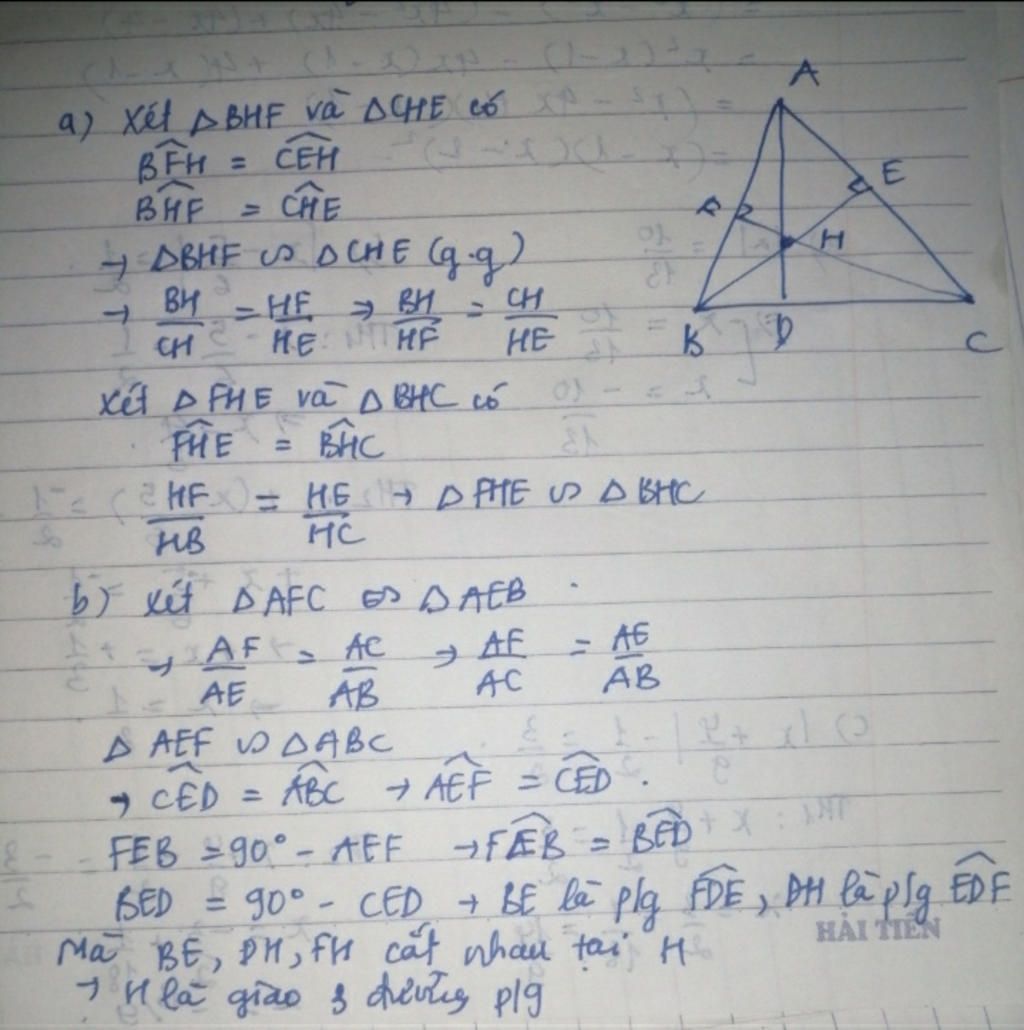 a) Xét △BHF và △CHE có
BFH = CEH
BHF = CHE
→ △BHF ∽ △CHE (g.g)
→ BH/CH = HF/HE → BH/HF = CH/HE
Xét △FHE và △BHC có
FHE = BHC
HF/HB = HE/HC → △FHE ∽ △BHC
b) Xét △AFC ∽ △AEB
→ AF/AE = AC/AB → AF/AC = AE/AB
△AEF ∽ △ABC
→ CED = ABC → AEF = CED.
FEB = 90° - AEF → FEB = BED
BED = 90° - CED → BE là p/g FDE, DH là p/g EDF
Mà BE, DH, FH cắt nhau tại H
→ H là giao 3 đường p/g
A
E
H
B
D
C
HẢI TIẾN